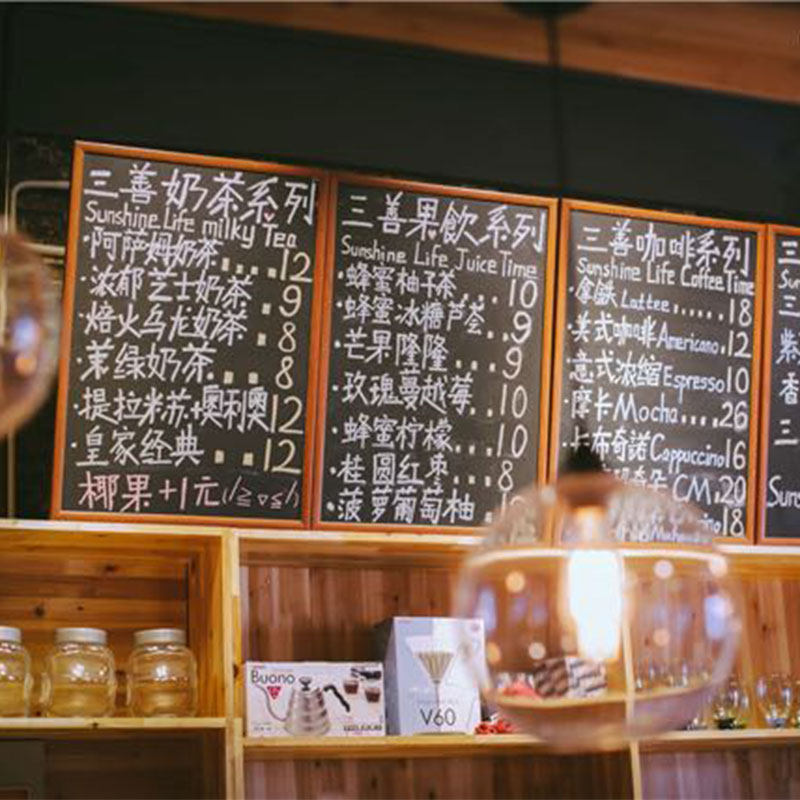 三善奶茶系列
Sunshine Life milky Tea
·阿萨姆奶茶....12
·浓郁芝士奶茶.9
·焙火乌龙奶茶.8
·茉绿奶茶...8
·提拉米苏+奥利奥12
·皇家经典..12
椰果+1元(/≧▽≦/)
三善果飲系列
Sunshine Life Juice Time
·蜂蜜柚子茶...10
·蜂蜜冰糖芦荟..9
·芒果隆隆...9
·玫瑰蔓越莓..10
·蜂蜜柠檬...10
·桂圆红枣...8
·菠萝葡萄柚
三善咖啡系列
Sunshine Life Coffee Time
·拿鉄Lattee......18
·美式咖啡Americano.12
·意式浓缩Espresso10
·摩卡Mocha....26
·卡布奇諾Cappuccino16
CM.20
18
Buono
V60